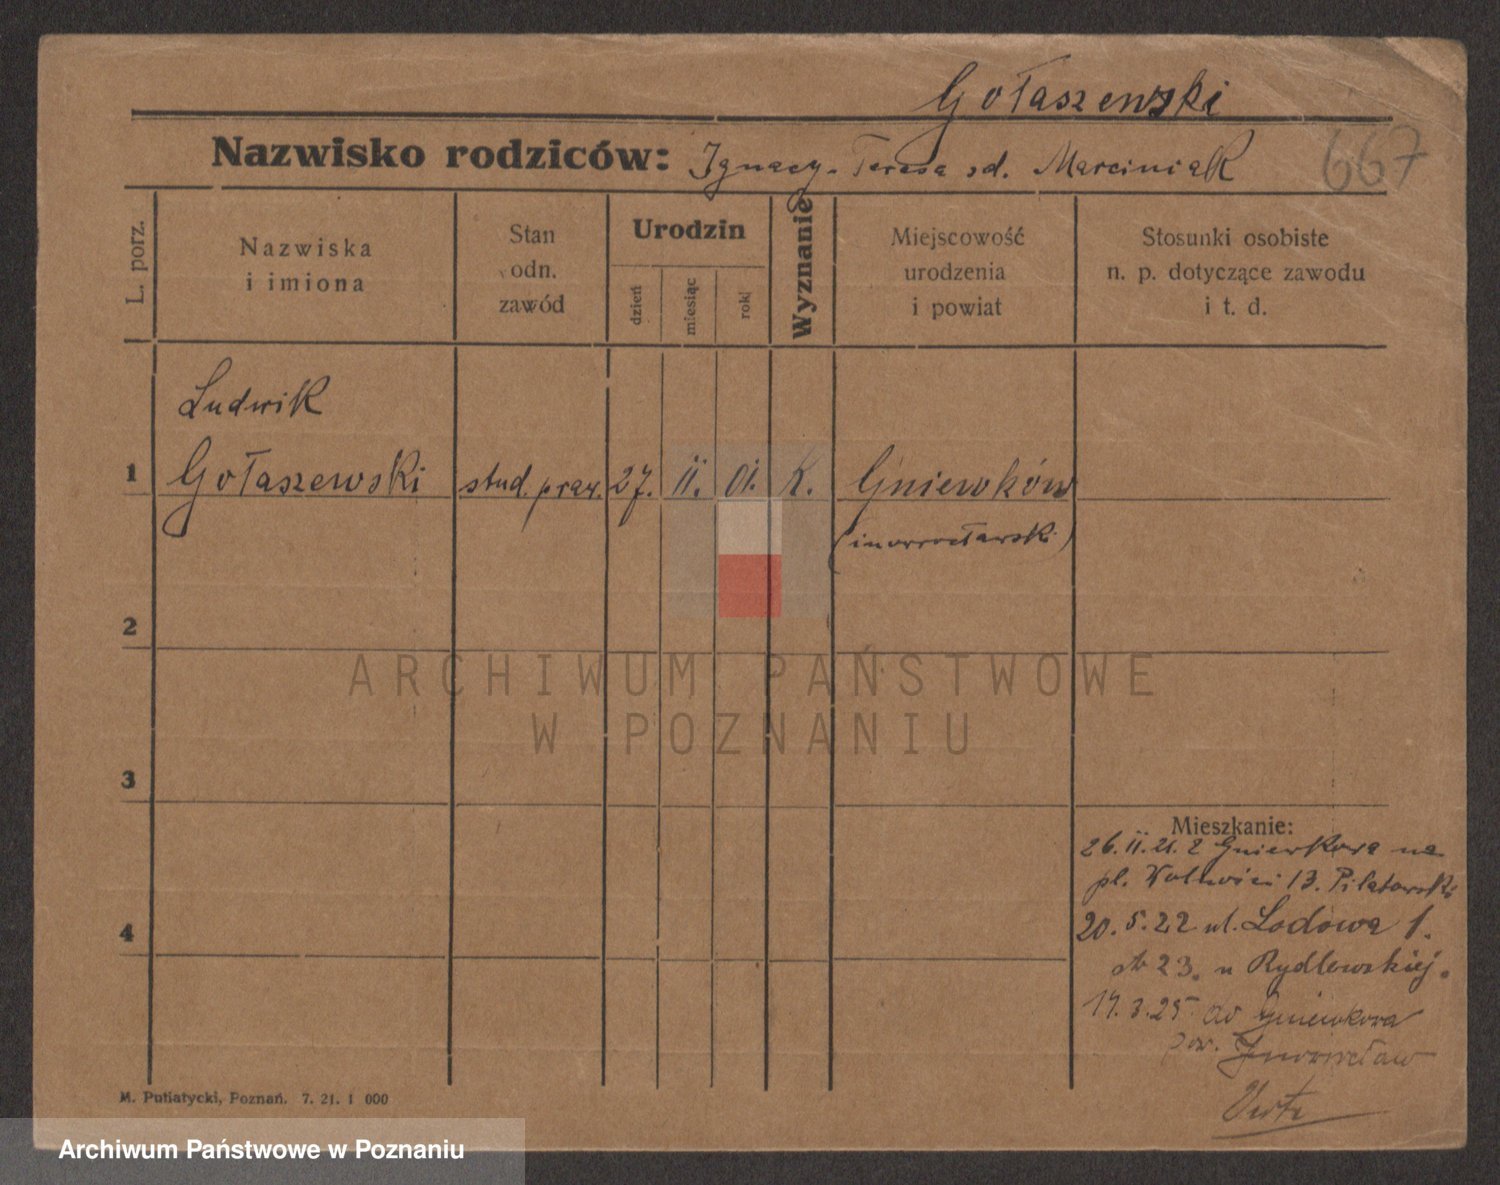 Gołaszewski
Nazwisko rodziców: Ignacy. Teresa zd. Marciniak
667
L. porz.
Nazwiska
i imiona
Stan
odn.
zawód
Urodzin
dzień
miesiąc
rok
Wyznanie
Miejscowość
urodzenia
i powiat
Stosunki osobiste
n. p. dotyczące zawodu
i t. d.
Ludwik
1 Gołaszewski stud. praw. 27. II. 01. K. Gniewków
(inowrocławski)
2
ARCHIWUM PAŃSTWOWE
W POZNANIU
3
Mieszkanie:
26. II. 21. z Gniewkowa na
pl. Wolności 13. Pilatowski
4
20. 5. 22 ul. Lodowa 1.
23. u Rydlewskiej.
17. 3. 25 do Gniewkowa
pow. Inowrocław
M. Putiatycki, Poznań. 7. 21. 1 000
Archiwum Państwowe w Poznaniu